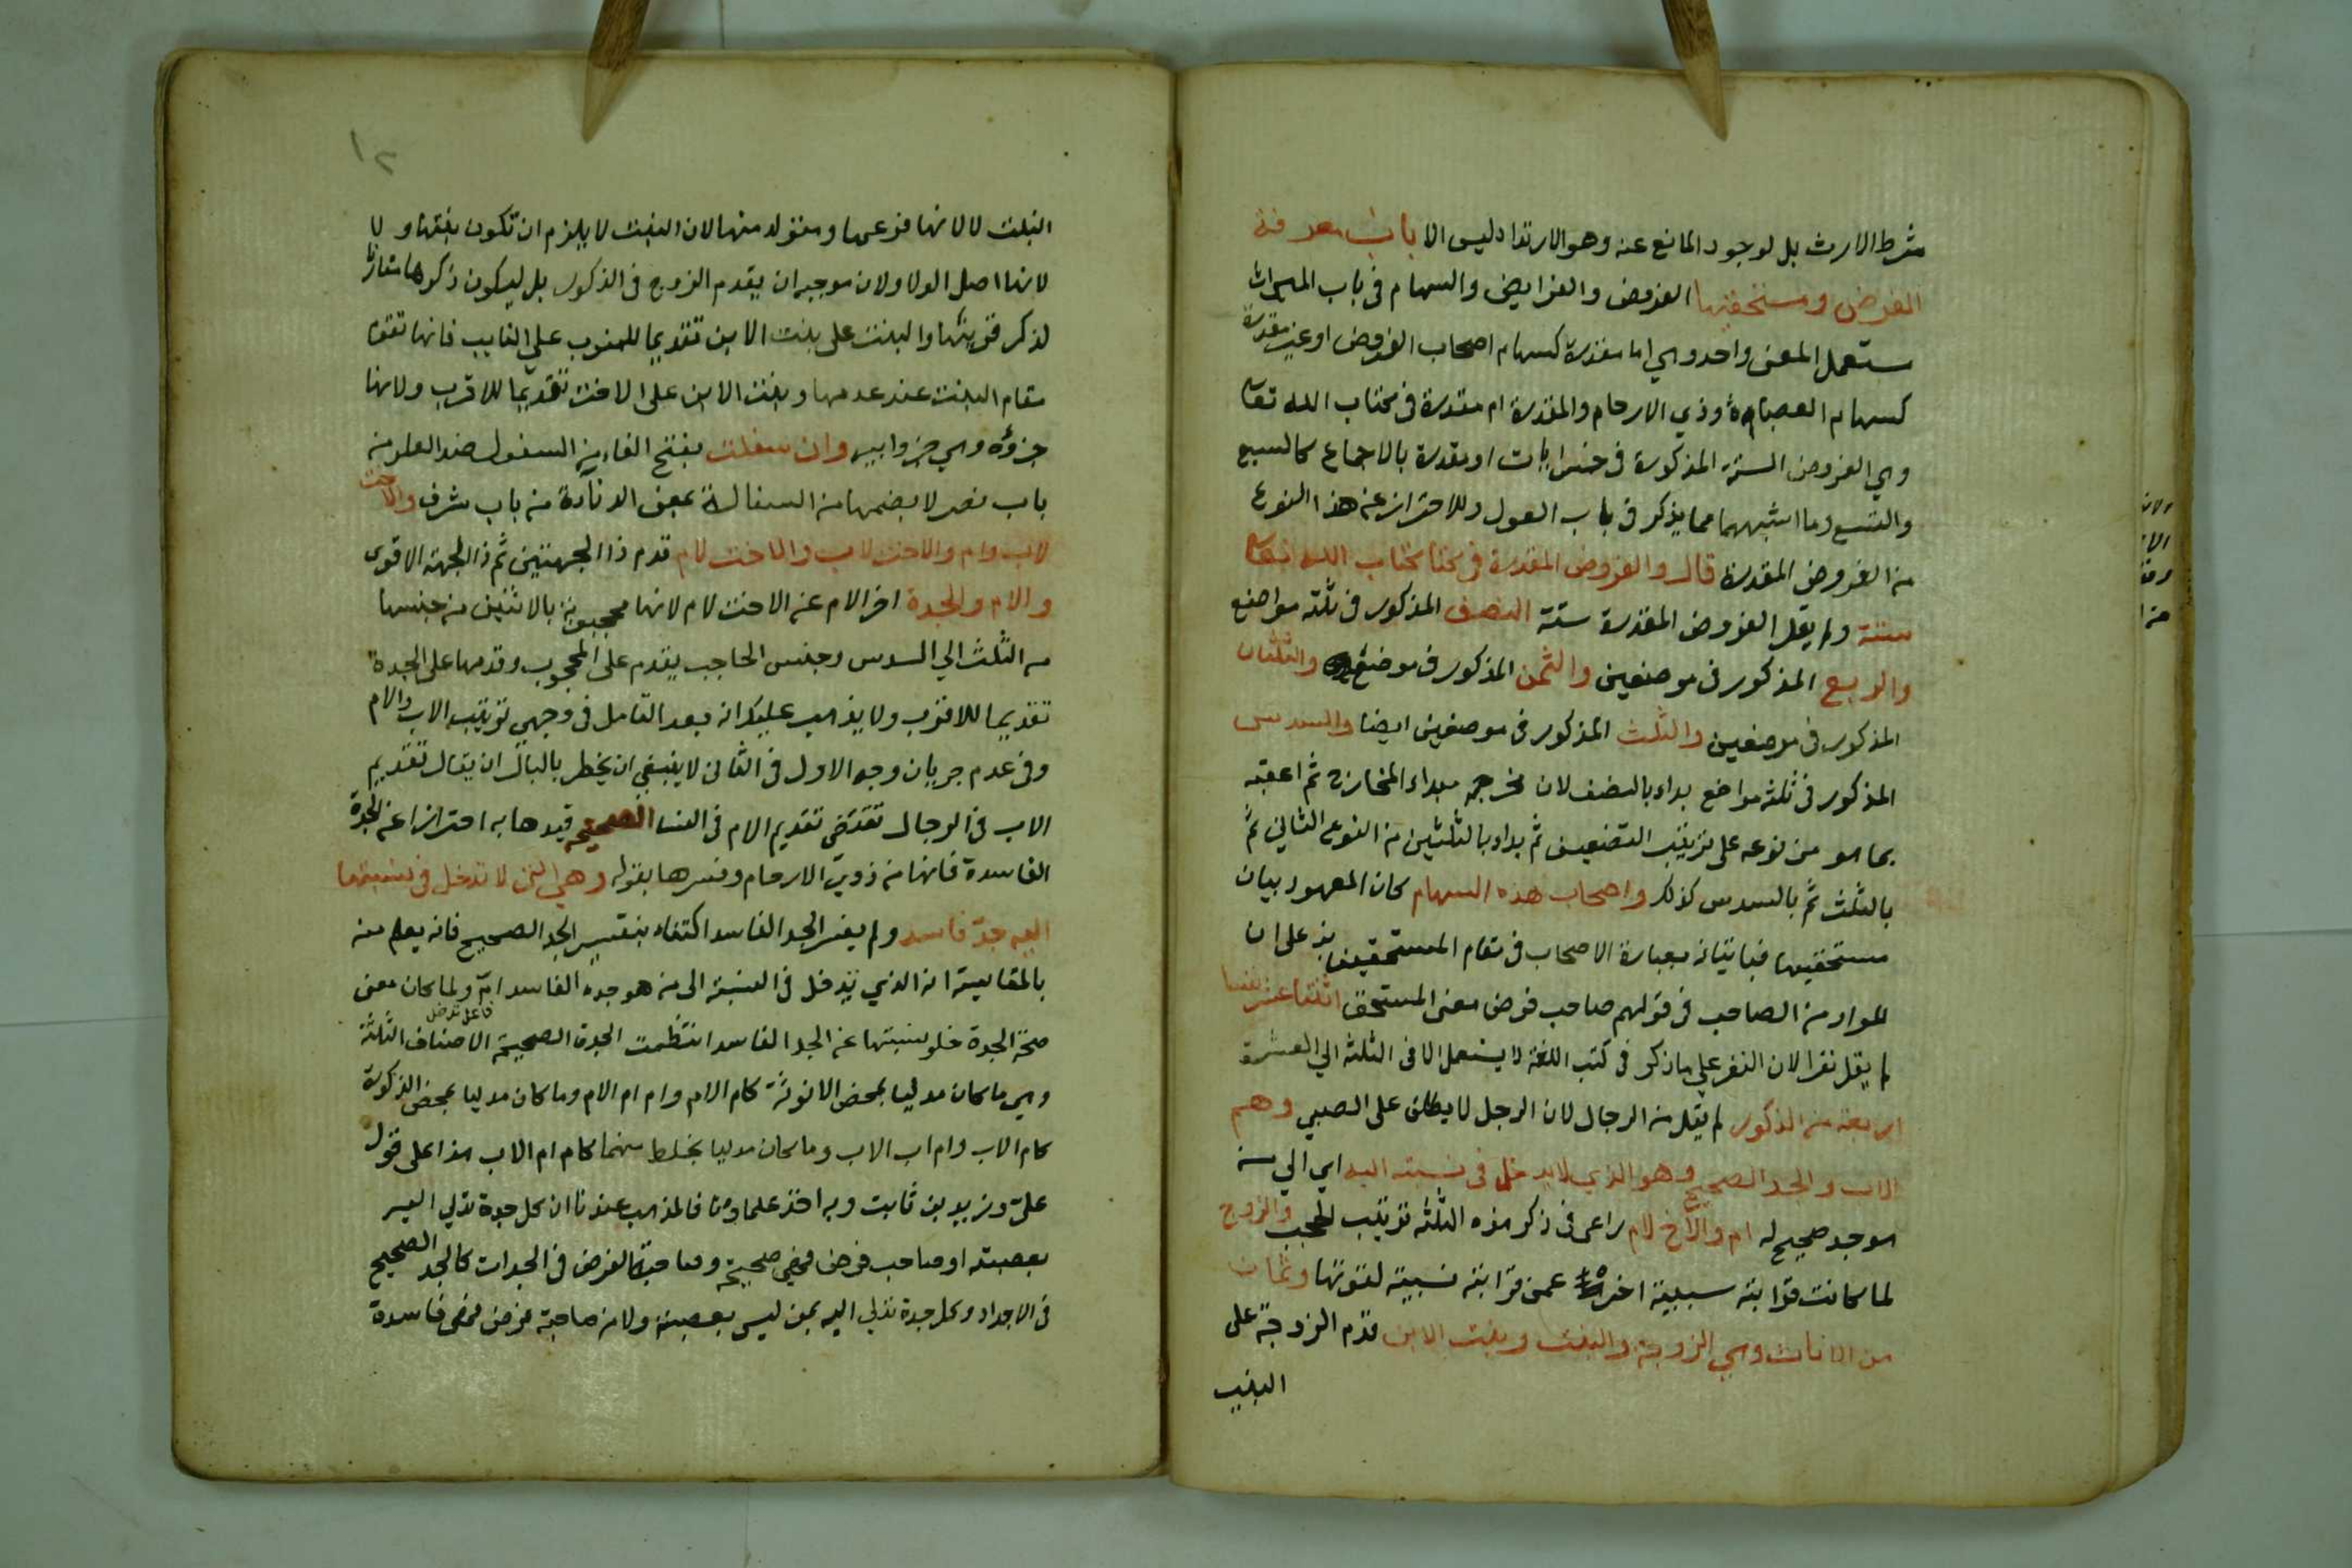 شرط الارث بل لوجود المانع عنه وهو الارتداد ليس الا باب معرفة
الفرض ومستحقيها الفروض والفرايض والسهام في باب الميراث
ستعمل المعنى واحد وهي اما مقدرة كسهام اصحاب الفروض او غير مقدرة
كسهام العصباة وذي الارحام والمقدرة ام مقدرة في كتاب الله تعا
وهي الفروض الستة المذكورة في خمس ايات او مقدرة بالاجماع كالسبع
والتسع وما اشبههما مما يذكر في باب العول وللاحتراز عن هذا النوع
من الفروض المقدرة قال والفروض المقدرة في كتاب الله تعا
ستة ولم يقل الفروض المقدرة ستة النصف المذكور في ثلثة مواضع
والربع المذكور في موضعين والثمن المذكور في موضع والثلثان
المذكور في موضعين والثلث المذكور في موضعين ايضا والسدس
المذكور في ثلثة مواضع بداء بالنصف لان مخرجه مبداء المخارج ثم اعقبه
بما هو من نوعه على ترتيب التضعيف ثم بداء بالثلثين من النوع الثاني ثم
بالثلث ثم بالسدس كذلك واصحاب هذه السهام كان المعهود بيان
مستحقيها فبيانه بعبارة الاصحاب في مقام المستحقين به على ان
المراد من الصاحب في قولهم صاحب فرض معنى المستحق اثنتا عشر نفسا
لم يقل نفرا لان النفر على ما ذكر في كتب اللغة لا يستعمل الا في الثلثة الى العشرة
اربعة من الذكور لم يقل من الرجال لان الرجل لا يطلق على الصبي وهم
الاب والجد الصحيح وهو الذي لا يدخل في نسبته اليه اي الى من
هو جد صحيح له ام والاخ لام راعى في ذكر هذه الثلثة ترتيب الحجب والزوج
لما كانت قرابته سببية اخره عمن قرابته نسبية لقوتها وثمان
من الاناث وهي الزوجة والبنت وبنت الابن قدم الزوجة على
البنت
١٢
البنت لا لانها فرعها ومتولد منها لان البنت لا يلزم ان تكون بنتها ولا
لانها اصل الولا ولان موجبه ان يقدم الزوج في الذكور بل ليكون ذكرها مقارنا
لذكر قرينها والبنت على بنت الابن تقديما للمنوب على النايب فانها تقوم
مقام البنت عند عدمها وبنت الابن على الاخت تقديما للاقرب ولانها
جزؤه وهي جزو ابيه وان سفلت بفتح الفاء من السفول ضد العلو من
باب نصر لا بضمها من السفالة بمعنى الدناءة من باب شرف والاخت
لاب وام والاخت لاب والاخت لام قدم ذا الجهتين ثم ذا الجهة الاقوى
والام والجدة اخر الام عن الاخت لام لانها محجوبة بالاثنين من جنسها
من الثلث الى السدس وجنس الحاجب يقدم على المحجوب وقدمها على الجدة
تقديما للاقرب ولا يذهب عليك انه بعد التامل في وجهي ترتيب الاب والام
وفي عدم جريان وجه الاول في الثاني لا ينبغي ان يخطر بالبال ان يقال تقديم
الاب في الرجال تقتضي تقديم الام في النسا الصحيحة قيدها به احترازا عن الجدة
الفاسدة فانها من ذوي الارحام وفسرها بقوله وهي التي لا تدخل في نسبتها
اليه جد فاسد ولم يفسر الجد الفاسد اكتفاء بتفسير الجد الصحيح فانه يعلم منه
بالمقايسة ان الذي يدخل في النسبة الى من هو جده الفاسد ام ولما كان معنى
فاعل تدخل
صحة الجدة خلو نسبتها عن الجد الفاسد انتظمت الجدة الصحيحة الاصناف الثلثة
وهي ما كان مدليا بمحض الانوثة كام الام وام ام الام وما كان مدليا بمحض الذكورة
كام الاب وام اب الاب وما كان مدليا بخلط منهما كام ام الاب هذا على قول
علي وزيد بن ثابت وبه اخذ علماؤنا فالمذهب عندنا ان كل جدة تدلي اليه
بعصبته او صاحب فرض فهي صحيحة وصاحبة الفرض في الجدات كالجد الصحيح
في الاجداد وكل جدة تدلي اليه بمن ليس بعصبته ولا من صاحبة فرض فهي فاسدة